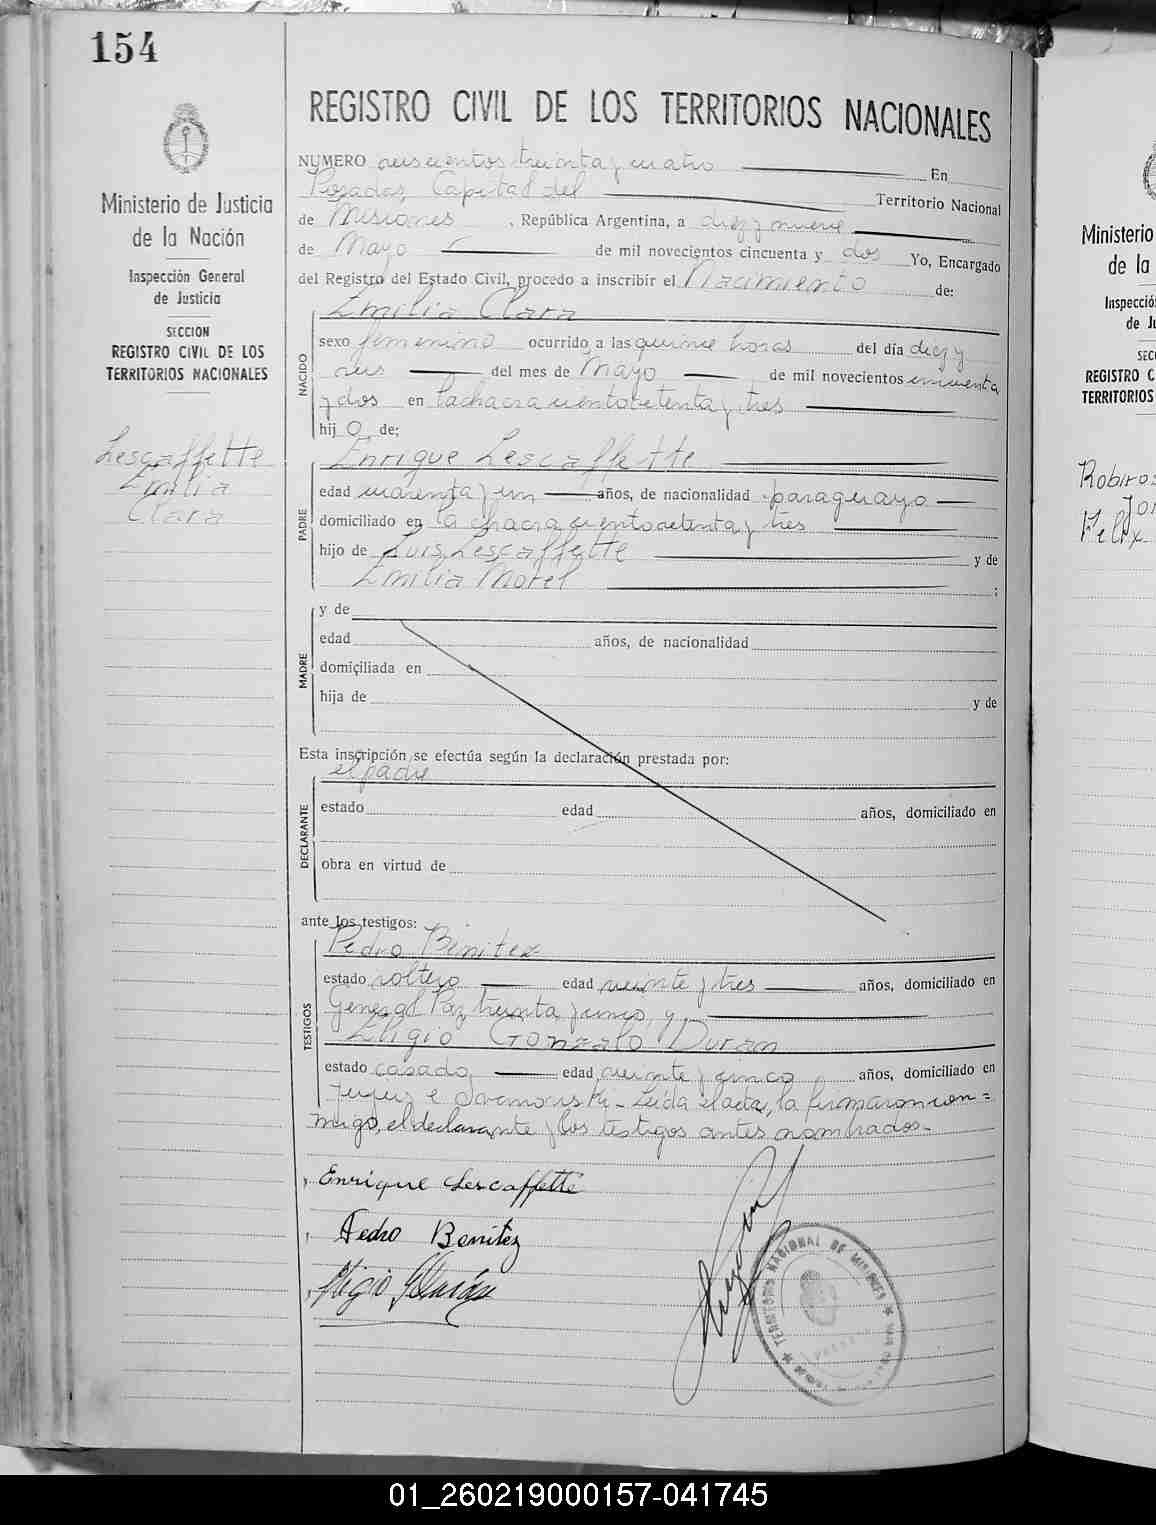 154
Ministerio de Justicia
de la Nación
Inspección General
de Justicia
SECCION
REGISTRO CIVIL DE LOS
TERRITORIOS NACIONALES
Lescaffette
Emilia
Clara
REGISTRO CIVIL DE LOS TERRITORIOS NACIONALES
NUMERO seiscientos treinta y cuatro En
Posadas, Capital del Territorio Nacional
de Misiones, República Argentina, a diez y nueve
de Mayo de mil novecientos cincuenta y dos Yo, Encargado
del Registro del Estado Civil, procedo a inscribir el Nacimiento de:
Emilia Clara
NACIDO
sexo femenino ocurrido a las quince horas del día diez y
seis del mes de Mayo de mil novecientos cincuenta
y dos en la chacra ciento setenta y tres
hij O de;
Enrique Lescaffette
PADRE
edad cuarenta y un años, de nacionalidad paraguayo
domiciliado en la chacra ciento setenta y tres
hijo de Luis Lescaffette y de
Emilia Morel ;
MADRE
y de
edad años, de nacionalidad
domiciliada en
hija de y de
Esta inscripción se efectúa según la declaración prestada por:
el padre
DECLARANTE
estado edad años, domiciliado en
obra en virtud de
ante los testigos:
Pedro Benitez
TESTIGOS
estado soltero edad veinte y tres años, domiciliado en
General Paz treinta y cinco, y
Eligio Gonzalo Duran
estado casado, edad veinte y cinco años, domiciliado en
Jujuy e - Leida el acta, la firmaron con=
migo, el declarante y los testigos antes nombrados.-
Enrique Lescaffette
Pedro Benitez
Eligio G Durán
TERRITORIO NACIONAL DE MISIONES
POSADAS
Ministerio
de la
Inspecció
de Ju
SEC
REGISTRO C
TERRITORIOS
Robiros
Jor
Felix
01_260219000157-041745